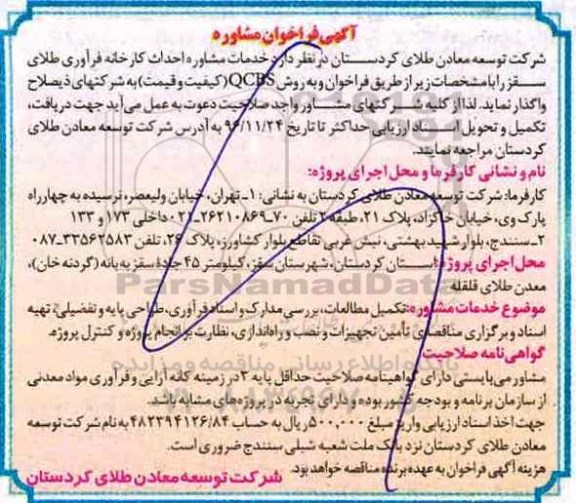 آگهی فراخوان مشاوره
شرکت توسعه معادن طلای کردستان در نظر دارد خدمات مشاوره احداث کارخانه فرآوری طلای
سقز را با مشخصات زیر از طریق فراخوان و به روش QCBS (کیفیت و قیمت) به شرکتهای ذیصلاح
واگذار نماید. لذا از کلیه شرکتهای مشاور واجد صلاحیت دعوت به عمل می‌آید جهت دریافت،
تکمیل و تحویل اسناد ارزیابی حداکثر تا تاریخ ۹۶/۱۱/۲۴ به آدرس شرکت توسعه معادن طلای
کردستان مراجعه نمایند.
نام و نشانی کارفرما و محل اجرای پروژه:
کارفرما: شرکت توسعه معادن طلای کردستان به نشانی: ۱ـ تهران، خیابان ولیعصر، نرسیده به چهارراه
پارک وی، خیابان خاکزاد، پلاک ۲۱، طبقه ۲ تلفن ۷۰ـ۲۶۲۱۰۸۶۹ـ۰۲۱ داخلی ۱۷۳ و ۱۳۳
۲ـ سنندج، بلوار شهید بهشتی، نبش غربی تقاطع بلوار کشاورز، پلاک ۲۶، تلفن ۳۳۵۶۲۵۸۳ـ۰۸۷
محل اجرای پروژه: استان کردستان، شهرستان سقز، کیلومتر ۴۵ جاده سقز به بانه (گردنه خان)،
معدن طلای قلقله
موضوع خدمات مشاوره: تکمیل مطالعات، بررسی مدارک و اسناد فرآوری، طراحی پایه و تفضیلی، تهیه
اسناد و برگزاری مناقصه‌ی تأمین تجهیزات و نصب و راه‌اندازی، نظارت بر انجام پروژه و کنترل پروژه.
گواهی نامه صلاحیت:
مشاور می‌بایستی دارای گواهینامه صلاحیت حداقل پایه ۲ در زمینه کانه آرایی و فرآوری مواد معدنی
از سازمان برنامه و بودجه کشور بوده و دارای تجربه در پروژه‌های مشابه باشد.
جهت اخذ اسناد ارزیابی واریز مبلغ ۵۰۰,۰۰۰ ریال به حساب ۴۸۲۳۹۴۱۲۶/۸۴ به نام شرکت توسعه
معادن طلای کردستان نزد بانک ملت شعبه شبلی سنندج ضروری است.
هزینه آگهی فراخوان به عهده برنده مناقصه خواهد بود.
شرکت توسعه معادن طلای کردستان
ParsNamadData
پایگاه اطلاع رسانی مناقصه و مزایده